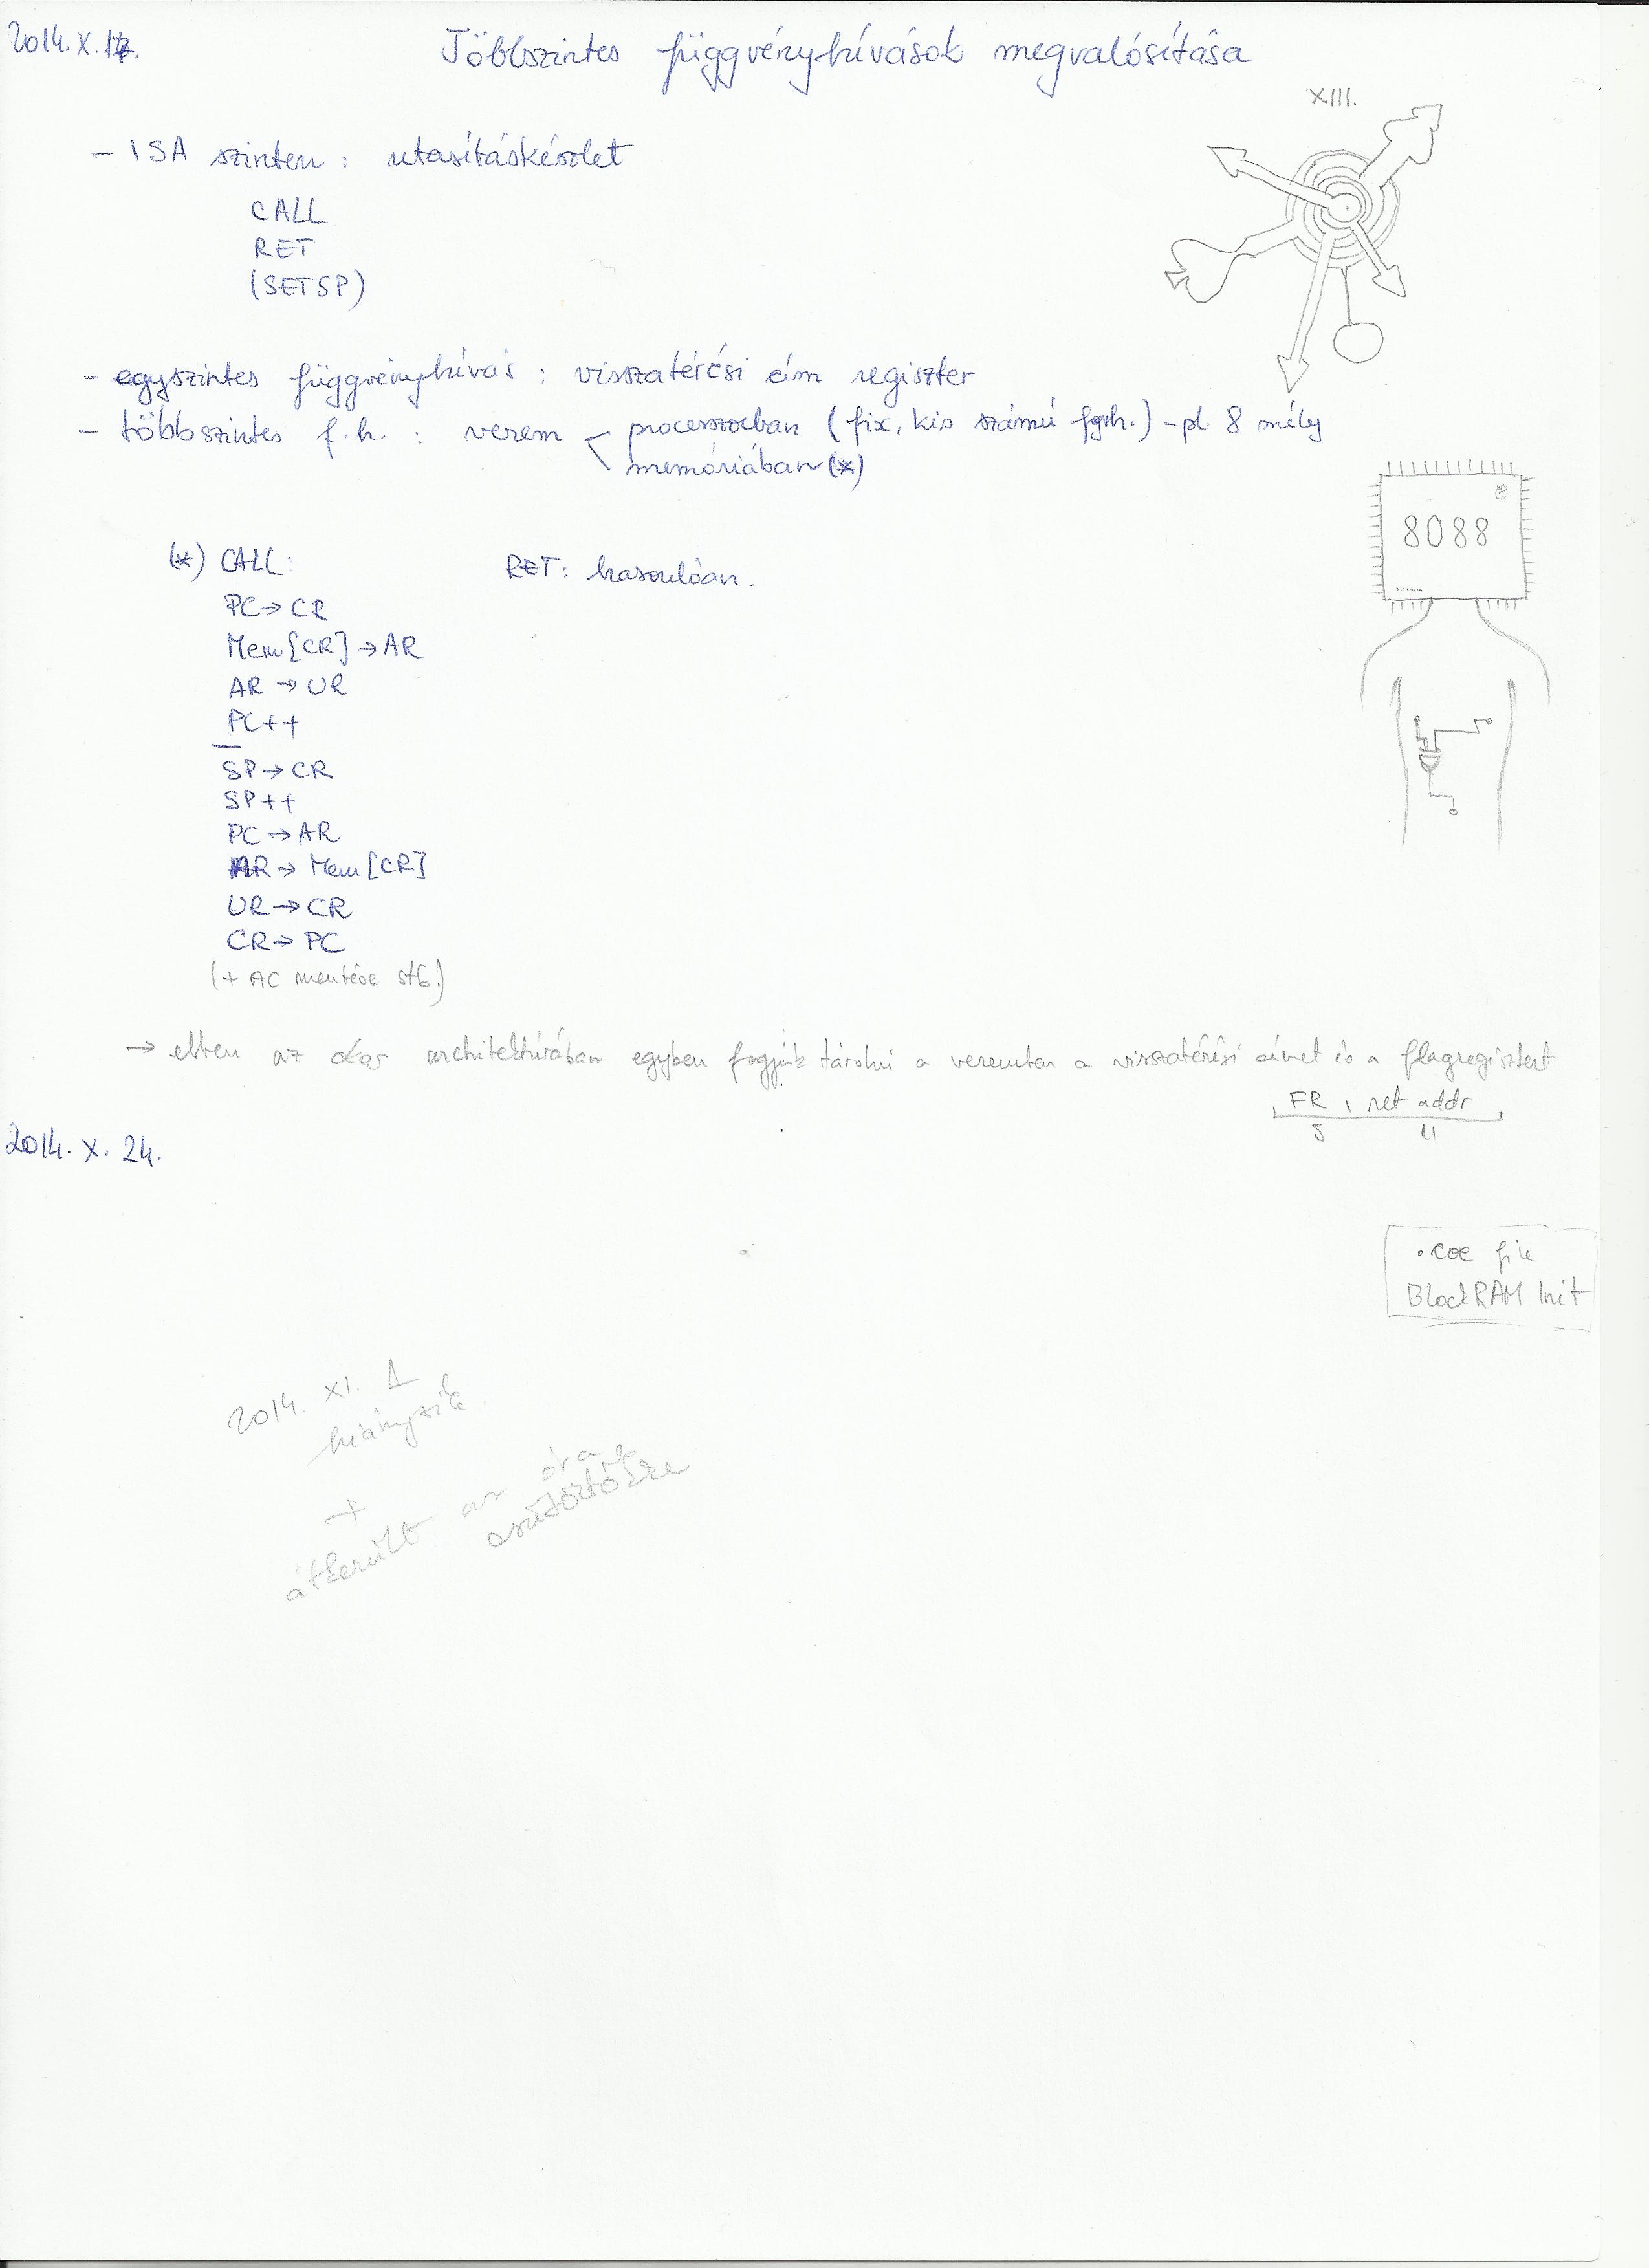 2014. X. 17.
Többszintes függvényhívások megvalósítása
XIII.
- ISA szinten : utasításkészlet
CALL
RET
(SETSP)
- egyszintes függvényhívás : visszatérési cím regiszter
- többszintes f.h. : verem processzorban (fix, kis számú fgvh.) - pl. 8 mély
memóriában (*)
8088
(*) CALL:
RET: hasonlóan.
PC → CR
Mem[CR] → AR
AR → UR
PC++
SP → CR
SP++
PC → AR
AR → Mem[CR]
UR → CR
CR → PC
(+ AC mentése stb.)
→ ebben az architektúrában egyben fogjuk tárolni a veremben a visszatérési címet és a flagregisztert
FR ret addr
5 11
2014. X. 24.
.coe file
BlockRAM Init
2014. XI. 1
hiányzik.
+
átkerült az óra
csütörtökre